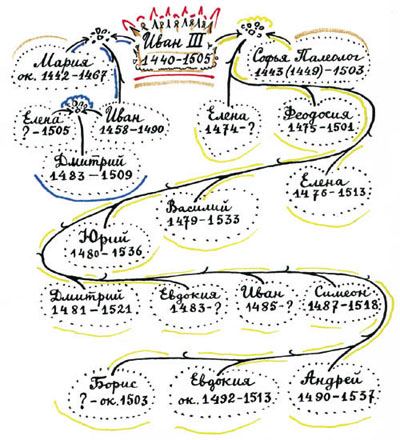 Иван III
1440-1505
Мария
ок. 1442-1467
Софья Палеолог
1443(1449)-1503
Елена
?-1505
Иван
1458-1490
Елена
1474-?
Феодосия
1475-1501
Дмитрий
1483-1509
Елена
1476-1513
Василий
1479-1533
Юрий
1480-1536
Дмитрий
1481-1521
Евдокия
1483-?
Иван
1485-?
Симеон
1487-1518
Борис
?-ок. 1503
Евдокия
ок. 1492-1513
Андрей
1490-1537